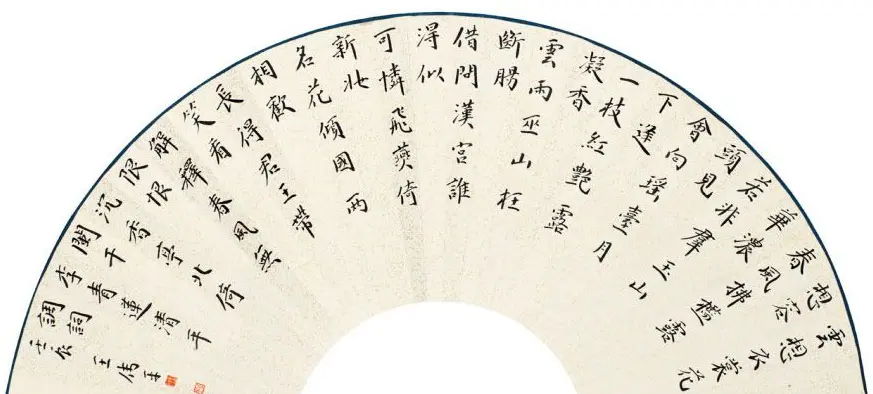 雲想衣裳花
想容
春風拂檻露
華濃
若非羣玉山
頭見
會向瑤臺月
下逢
一枝紅艷露
凝香
雲雨巫山枉
斷腸
借問漢宮誰
得似
可憐飛燕倚
新妝
名花傾國兩
相歡
長得君王帶
笑看
解釋春風無
限恨
沉香亭北倚
闌干
李青蓮清平
調詞
壬辰 王偉平